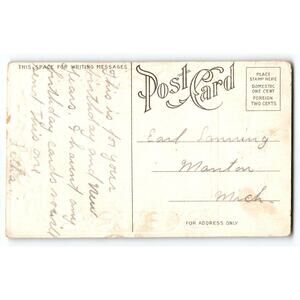 THIS SPACE FOR WRITING MESSAGES
Post Card
PLACE
STAMP HERE
DOMESTIC
ONE CENT
FOREIGN
TWO CENTS
This is for your
birthday and New
Years. I havent any
birthday cards so will
send this one
Earl
Manton
Mich.
FOR ADDRESS ONLY